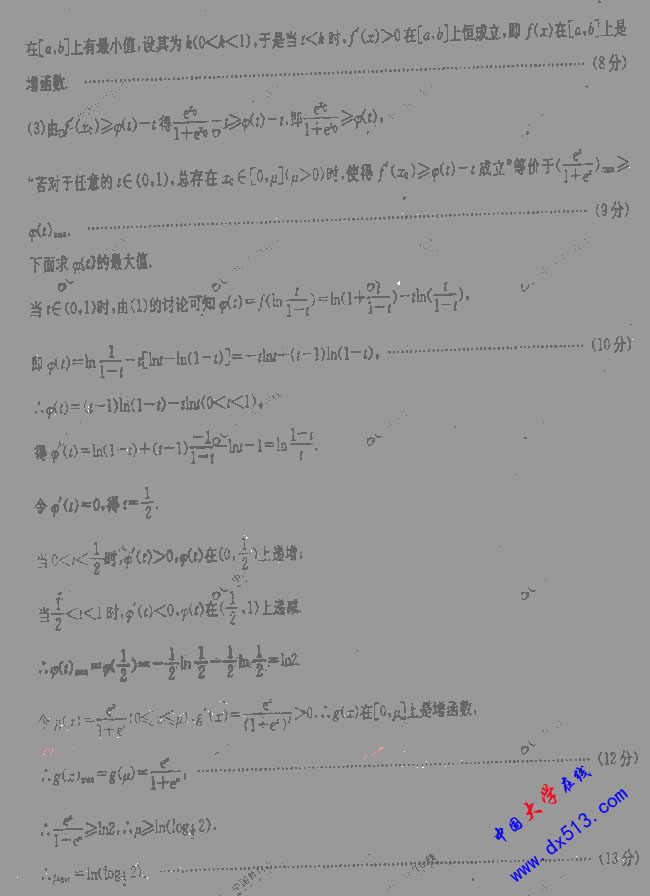 在[a,b]上有最小值,设其为k(0<k<1),于是当t<k时,f′(x)>0在[a,b]上恒成立,即f(x)在[a,b]上是
增函数. (8分)
(3)由f′(x₀)≥φ(t)-t得e^{x₀}/(1+e^{x₀})-t≥φ(t)-t,即e^{x₀}/(1+e^{x₀})≥φ(t),
“若对于任意的t∈(0,1),总存在x₀∈[0,μ](μ>0)时,使得f′(x₀)≥φ(t)-t成立”等价于(e^x/(1+e^x))max≥
φ(t)max. (9分)
下面求φ(t)的最大值.
当t∈(0,1)时,由(1)的讨论可知φ(t)=f(ln t/(1-t))=ln(1+t/(1-t))-tln(t/(1-t)),
即φ(t)=ln 1/(1-t)-t[lnt-ln(1-t)]=-tlnt+(t-1)ln(1-t), (10分)
∴φ(t)=(t-1)ln(1-t)-tlnt(0<t<1),
得φ′(t)=ln(1-t)+(t-1)·-1/(1-t)-lnt-1=ln (1-t)/t.
令φ′(t)=0,得t=1/2.
当0<t<1/2时,φ′(t)>0,φ(t)在(0,1/2)上递增;
当1/2<t<1时,φ′(t)<0,φ(t)在(1/2,1)上递减.
∴φ(t)max=φ(1/2)=-1/2 ln 1/2-1/2 ln 1/2=ln2.
令g(x)=e^x/(1+e^x)(0≤x≤μ),g′(x)=e^x/(1+e^x)²>0,∴g(x)在[0,μ]上是增函数,
∴g(x)max=g(μ)=e^μ/(1+e^μ), (12分)
∴e^μ/(1+e^μ)≥ln2,∴μ≥ln(log 2).
∴μmin=ln(log 2). (13分)
中国大学在线
www.dx513.com